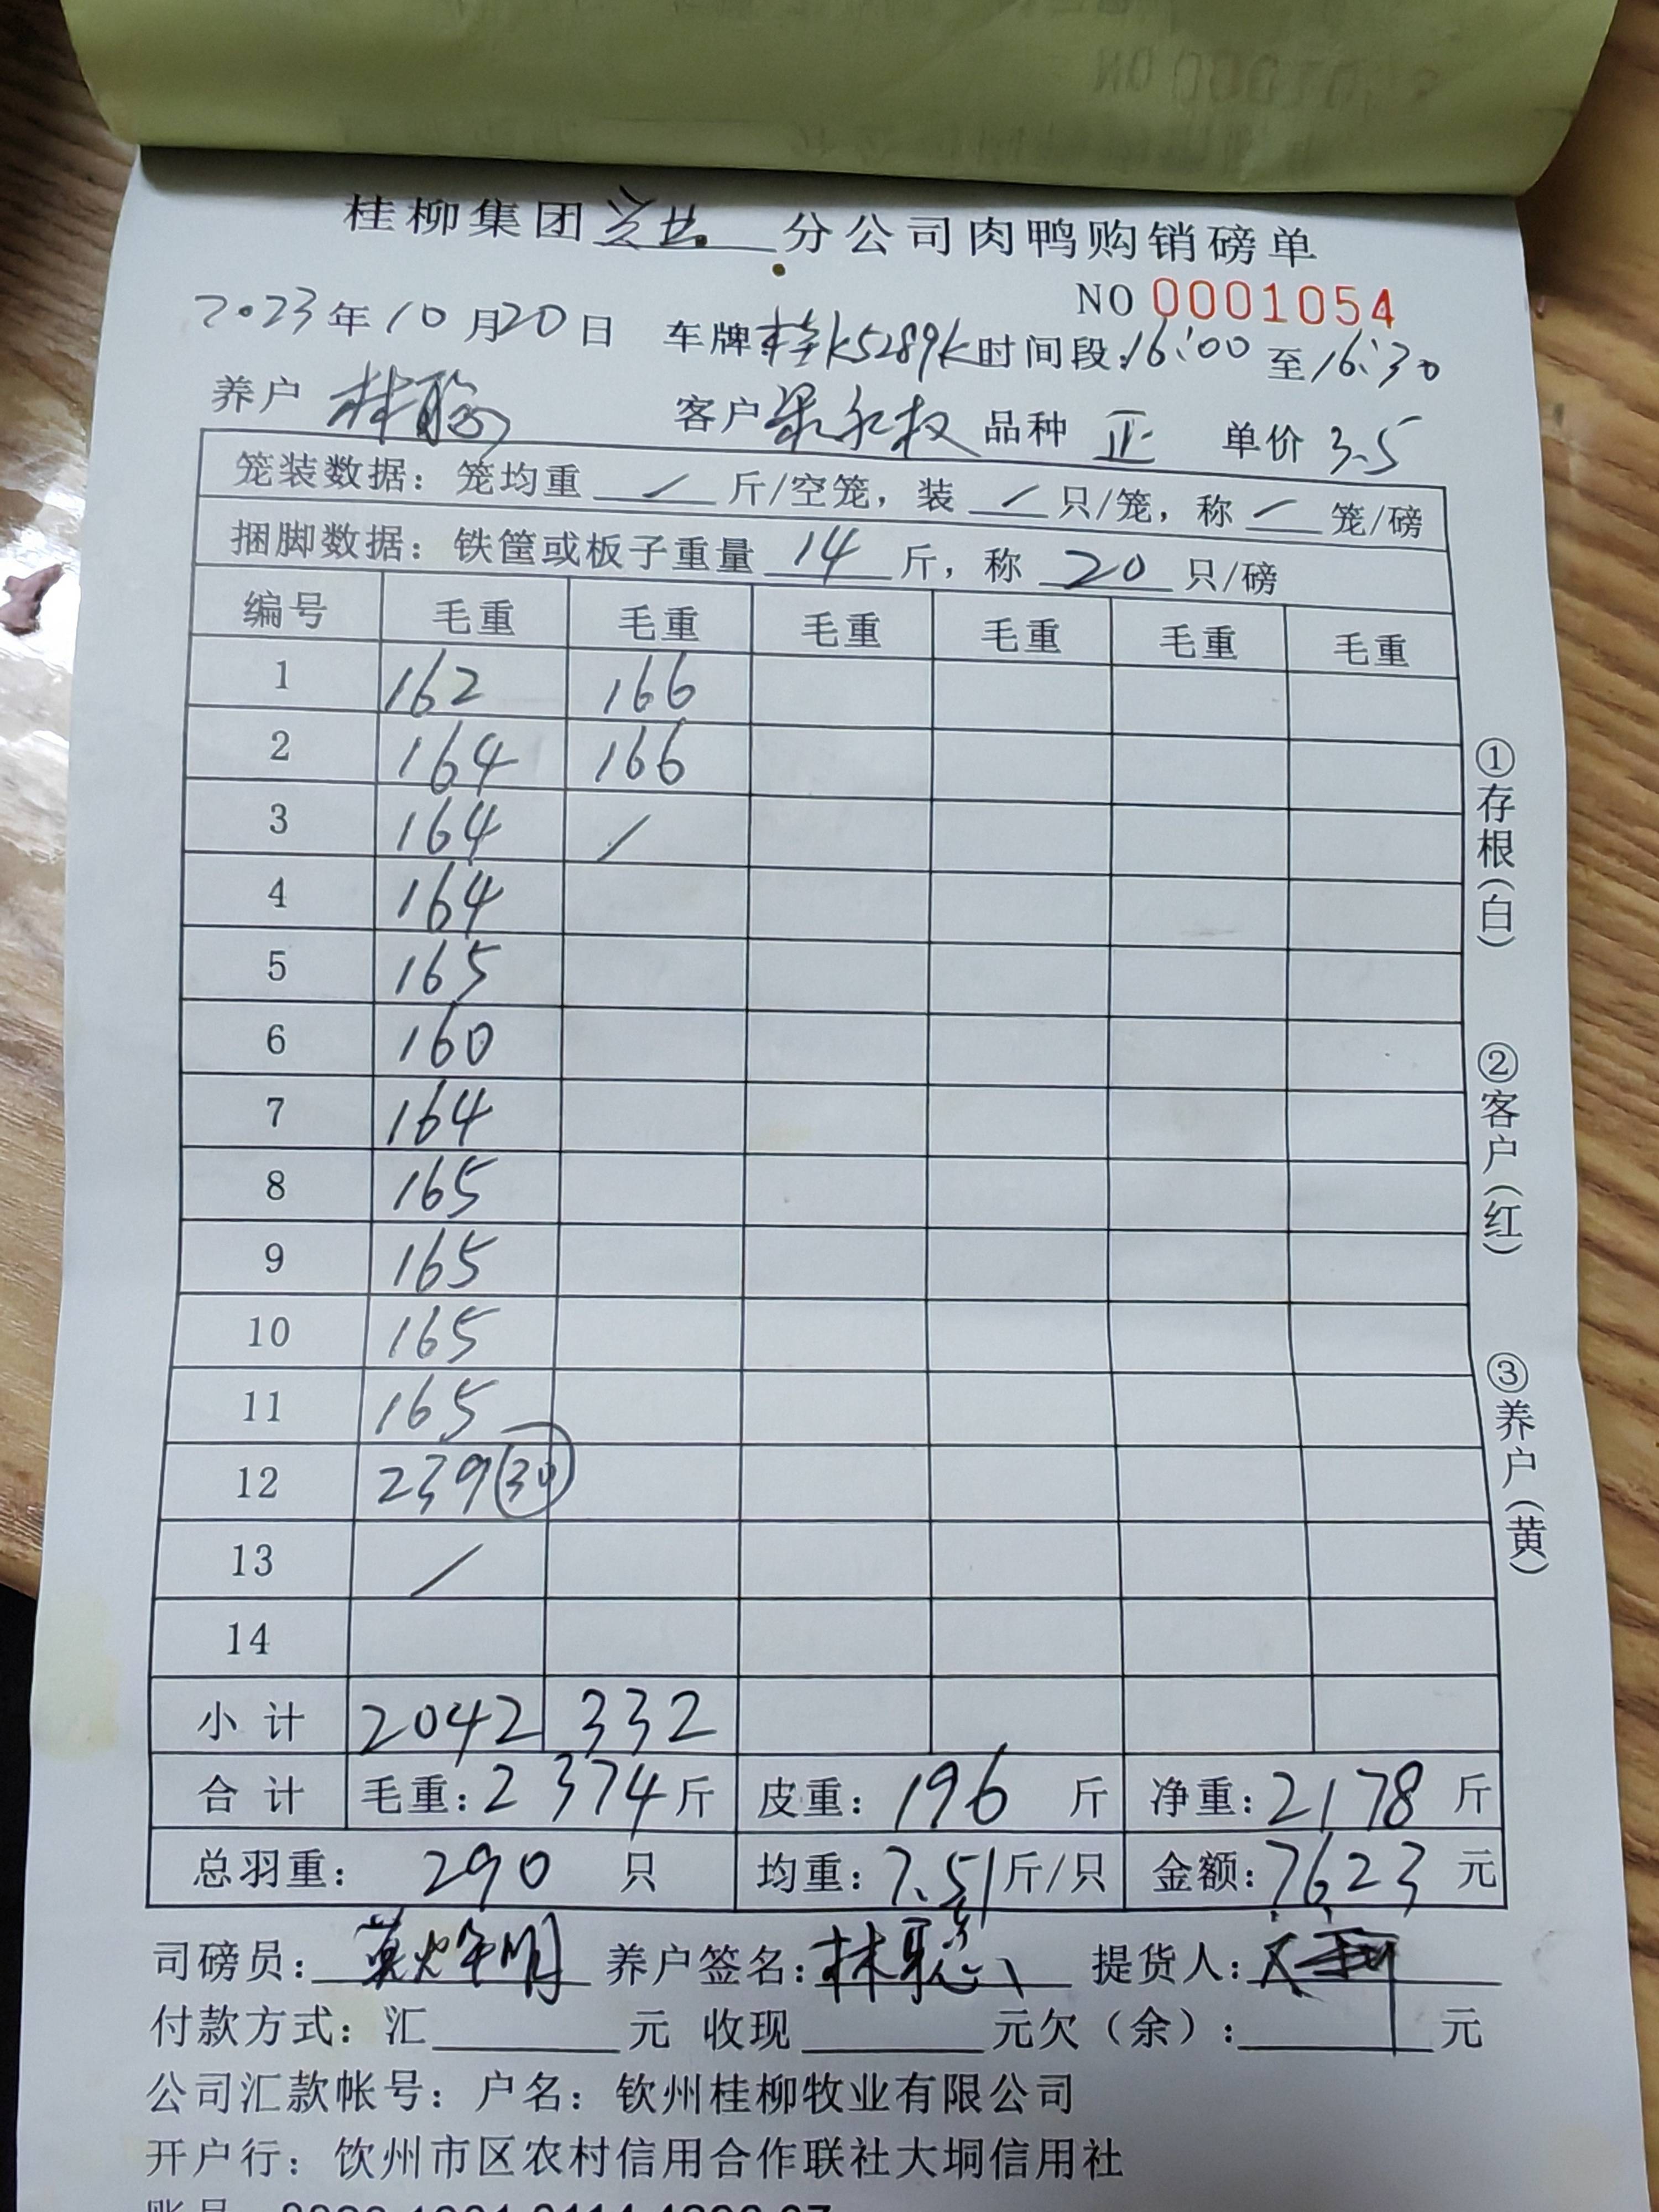 桂柳集团 分公司肉鸭购销磅单
NO 0001054
2023年10月20日 车牌桂K5289K时间段:16:00至16:30
养户 林聪 客户梁永权 品种 正 单价 3.5
笼装数据：笼均重 / 斤/空笼，装 / 只/笼，称 / 笼/磅
捆脚数据：铁筐或板子重量 14 斤，称 20 只/磅
编号 毛重 毛重 毛重 毛重 毛重 毛重
1 162 166
2 164 166
3 164 /
4 164
5 165
6 160
7 164
8 165
9 165
10 165
11 165
12 239 30
13 /
14
小计 2042 332
合计 毛重：2374斤 皮重：196斤 净重：2178斤
总羽重：290只 均重：7.51斤/只 金额：7623元
司磅员： 养户签名：林聪 提货人：
付款方式：汇 元 收现 元欠（余）： 元
公司汇款帐号：户名：钦州桂柳牧业有限公司
开户行：饮州市区农村信用合作联社大垌信用社
①存根（白）
②客户（红）
③养户（黄）